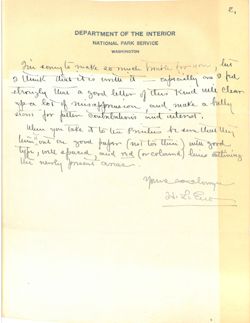 2.
DEPARTMENT OF THE INTERIOR
NATIONAL PARK SERVICE
WASHINGTON
I'm sorry to make so much trouble for you, but
I think that it is worth it — especially as I feel
strongly that a good letter of this kind will clear
up a lot of misapprehension and make a
for future and interest.
When you take it to the Printers be sure that they
use good paper (not too thin) with good
type, well spaced, and red (or colored) lines outlining
the newly present areas.
Yours